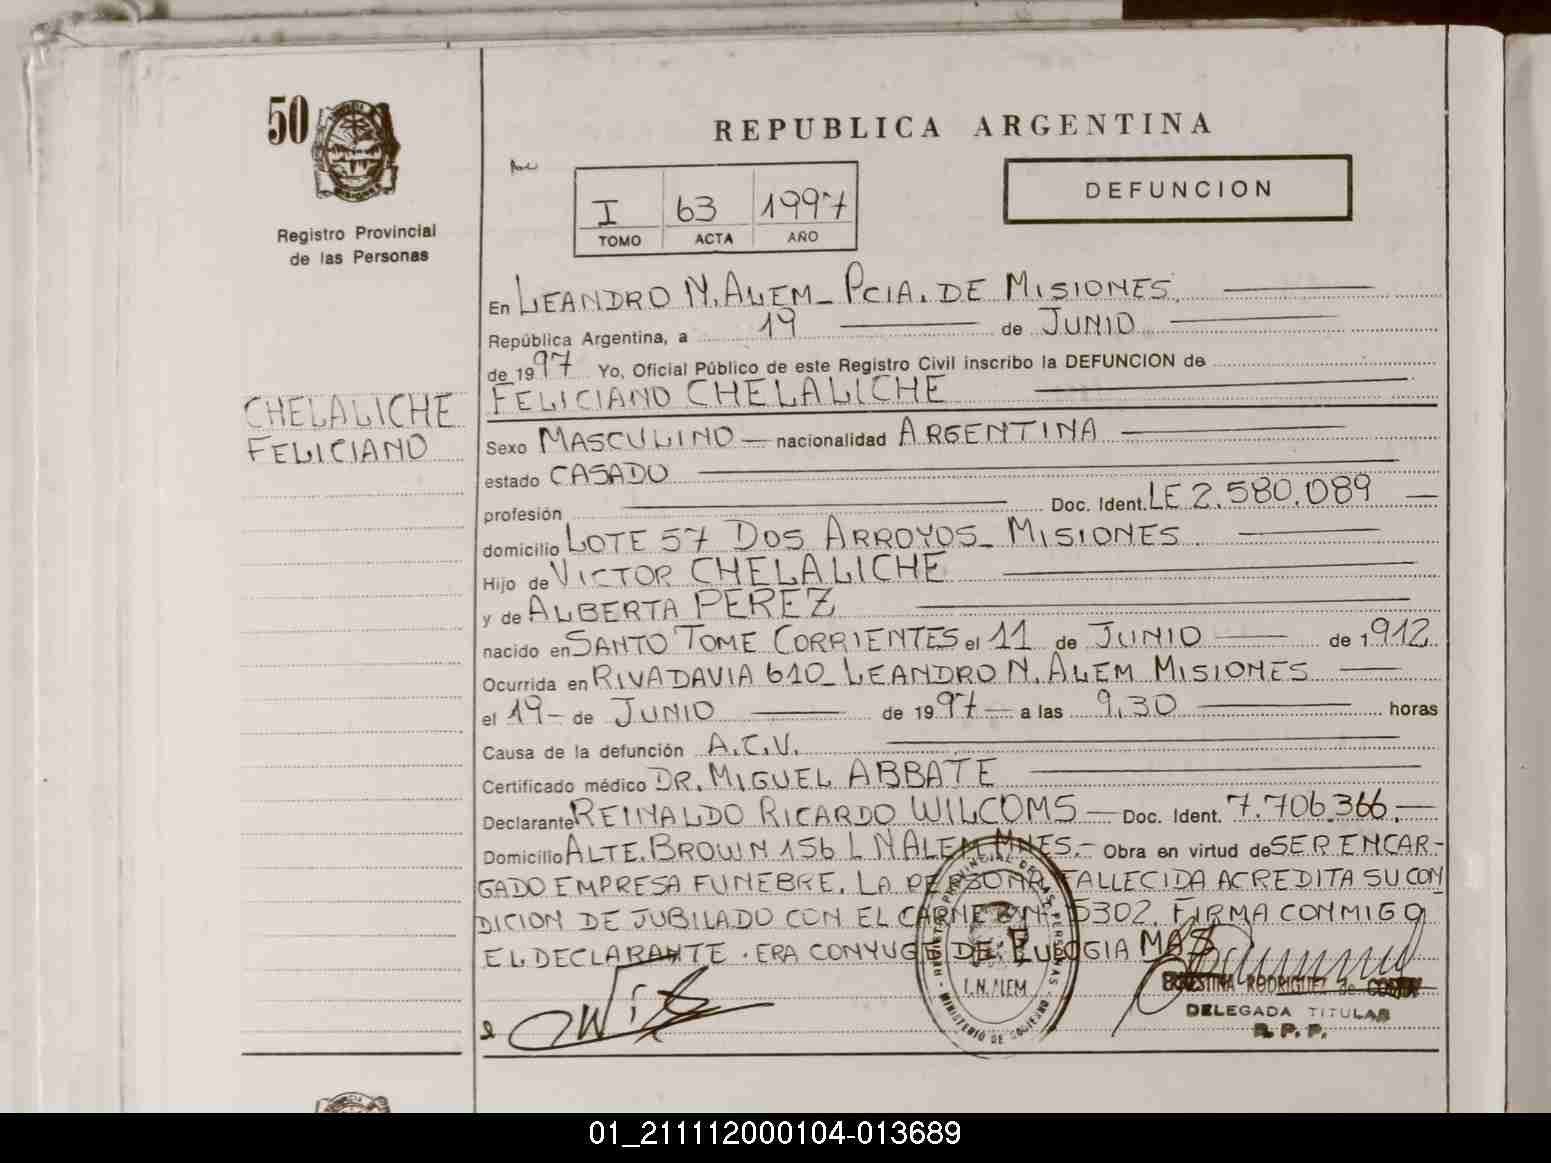 50
REPUBLICA ARGENTINA
I 63 1997
TOMO ACTA AÑO
DEFUNCION
Registro Provincial
de las Personas
En LEANDRO N. ALEM_ PCIA. DE MISIONES.
República Argentina, a 19 de JUNIO
de 1997 Yo, Oficial Público de este Registro Civil inscribo la DEFUNCION de
FELICIANO CHELALICHE
CHELALICHE
FELICIANO
Sexo MASCULINO — nacionalidad ARGENTINA
estado CASADO
profesión Doc. Ident. LE 2.580.089
domicilio LOTE 57 DOS ARROYOS_ MISIONES
Hijo de VICTOR CHELALICHE
y de ALBERTA PEREZ
nacido en SANTO TOME CORRIENTES el 11 de JUNIO de 1912
Ocurrida en RIVADAVIA 610_ LEANDRO N. ALEM MISIONES
el 19- de JUNIO de 1997 a las 9,30 horas
Causa de la defunción A.C.V.
Certificado médico DR. MIGUEL ABBATE
Declarante REINALDO RICARDO WILCOMS — Doc. Ident. 7.706.366.—
Domicilio ALTE. BROWN 156 L N ALEM MNES.- Obra en virtud de SER ENCAR-
GADO EMPRESA FUNEBRE. LA PERSONA FALLECIDA ACREDITA SU CON
DICION DE JUBILADO CON EL CARNE 5302. FIRMA CONMIGO
EL DECLARANTE. ERA CONYUGE DE EULOGIA MAS
REGISTRO PROVINCIAL DE LAS PERSONAS
L.N. ALEM
MINISTERIO DE GOBIERNO
ERNESTINA RODRIGUEZ de
DELEGADA TITULAR
R. P. P.
01_211112000104-013689